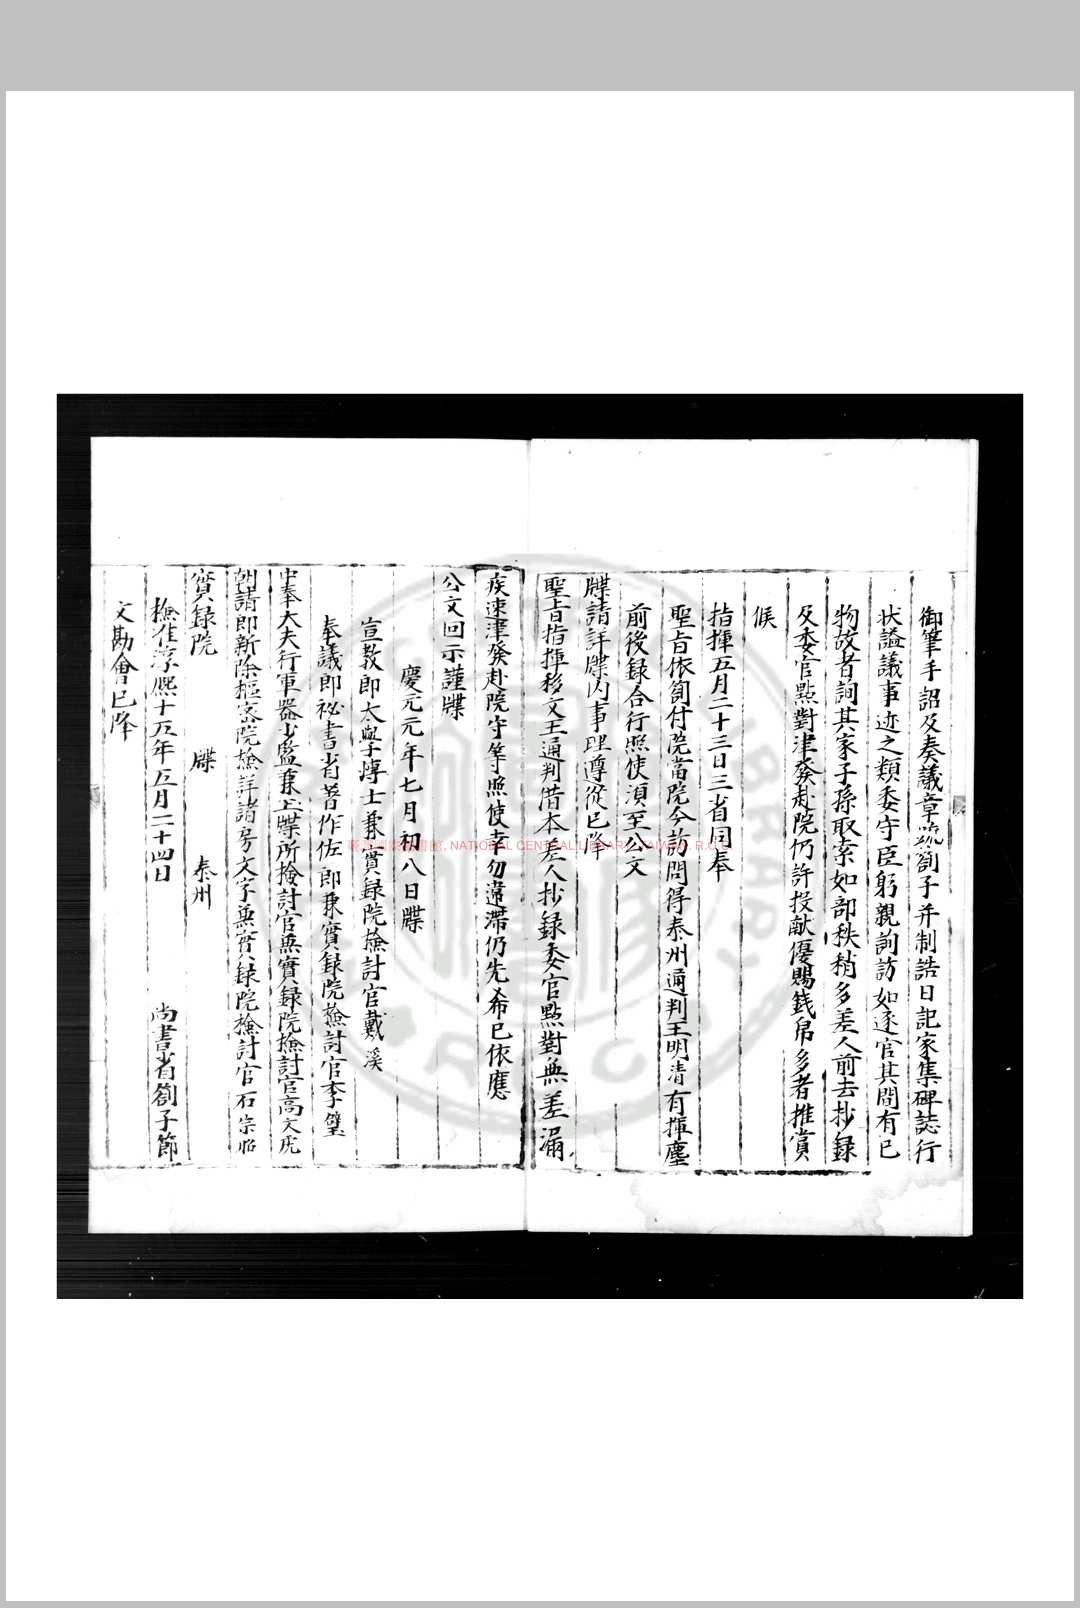 御筆手詔及奏議章疏劄子并制誥日記家集碑誌行
狀謚議事迹之類委守臣躬親詢訪如逐官其間有已
物故者詞其家子孫取索如部秩稍多差人前去抄錄
及委官點對津發赴院仍許投献優賜錢帛多者推賞
候
指揮五月二十三日三省同奉
聖旨依劄付院當院今訪問得泰州通判王明清有揮麈
前後録合行照使須至公文
牒請詳牒内事理遵從已降
聖旨指揮移文王通判借本差人抄録委官點對無差漏
疾速津發赴院守等照使幸勿違滯仍先希已依應
公文回示謹牒
慶元元年七月初八日牒
宣教郎太學博士兼實録院檢討官戴溪
奉議郎祕書省著作佐郎兼實録院檢討官李壁
中奉大夫行軍器少監兼上牒所檢討官兼實録院檢討官高文虎
朝請郎新除樞密院檢詳諸房文字兼實録院檢討官石宗昭
實録院 牒 泰州
檢准淳熙十五年五月二十四日 尚書省劄子節
文勘會已降
NATIONAL CENTRAL LIBRARY, TAIWAN, R.O.C.